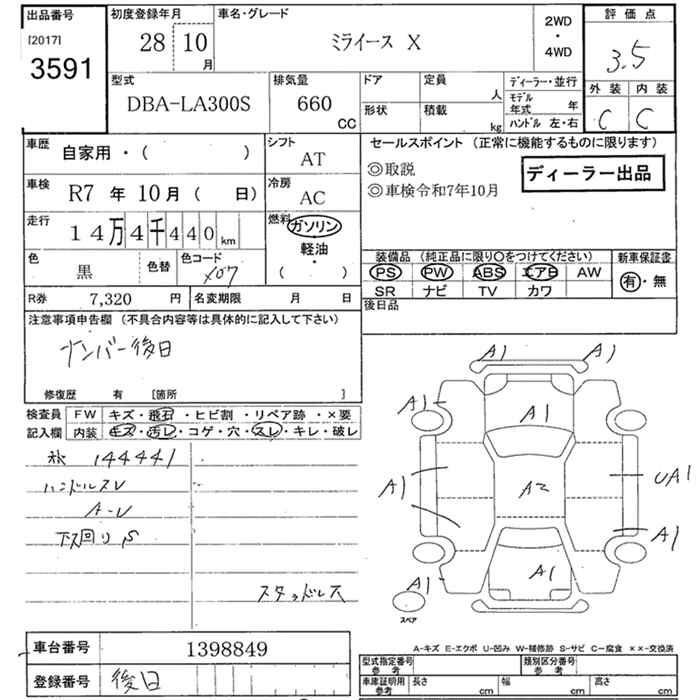 出品番号
[2017]
3591
初度登録年月
28 10
月
車名・グレード
ミライース X
2WD
・
4WD
評価点
3.5
外装 内装
C C
型式
DBA-LA300S
排気量
660
CC
ドア
形状
定員
人
積載
kg
ディーラー・並行
モデル年式 年
ハンドル 左・右
車歴
自家用・( )
シフト
AT
車検
R7 年 10月 ( 日)
冷房
AC
走行
14万4千440km
燃料
ガソリン
軽油
・
( )
色
黒
色替
色コード
X07
R券 7,320 円
名変期限 月 日
セールスポイント (正常に機能するものに限ります)
◎取説
◎車検令和7年10月
ディーラー出品
装備品 (純正品に限り○をつけてください)
PS PW ABS エアB AW
SR ナビ TV カワ
新車保証書
有・無
後日品
注意事項申告欄 (不具合内容等は具体的に記入して下さい)
ナンバー後日
修復歴 有 [箇所 ]
検査員記入欄
FW キズ・飛石・ヒビ割・リペア跡・×要
内装 キズ・汚レ・コゲ・穴・スレ・キレ・破レ
144441
ハンドルスレ
下回りS
スタッドレス
A1 A1
A1
A1
A1
A2
UA1
A1
A1
A1
スペア
車台番号 1398849
登録番号 後日
A-キズ E-エクボ U-凹み W-補修跡 S-サビ C-腐食 ××-交換済
型式指定番号 参考
類別区分番号 参考
車庫証明用 参考
長さ cm
幅 cm
高さ cm